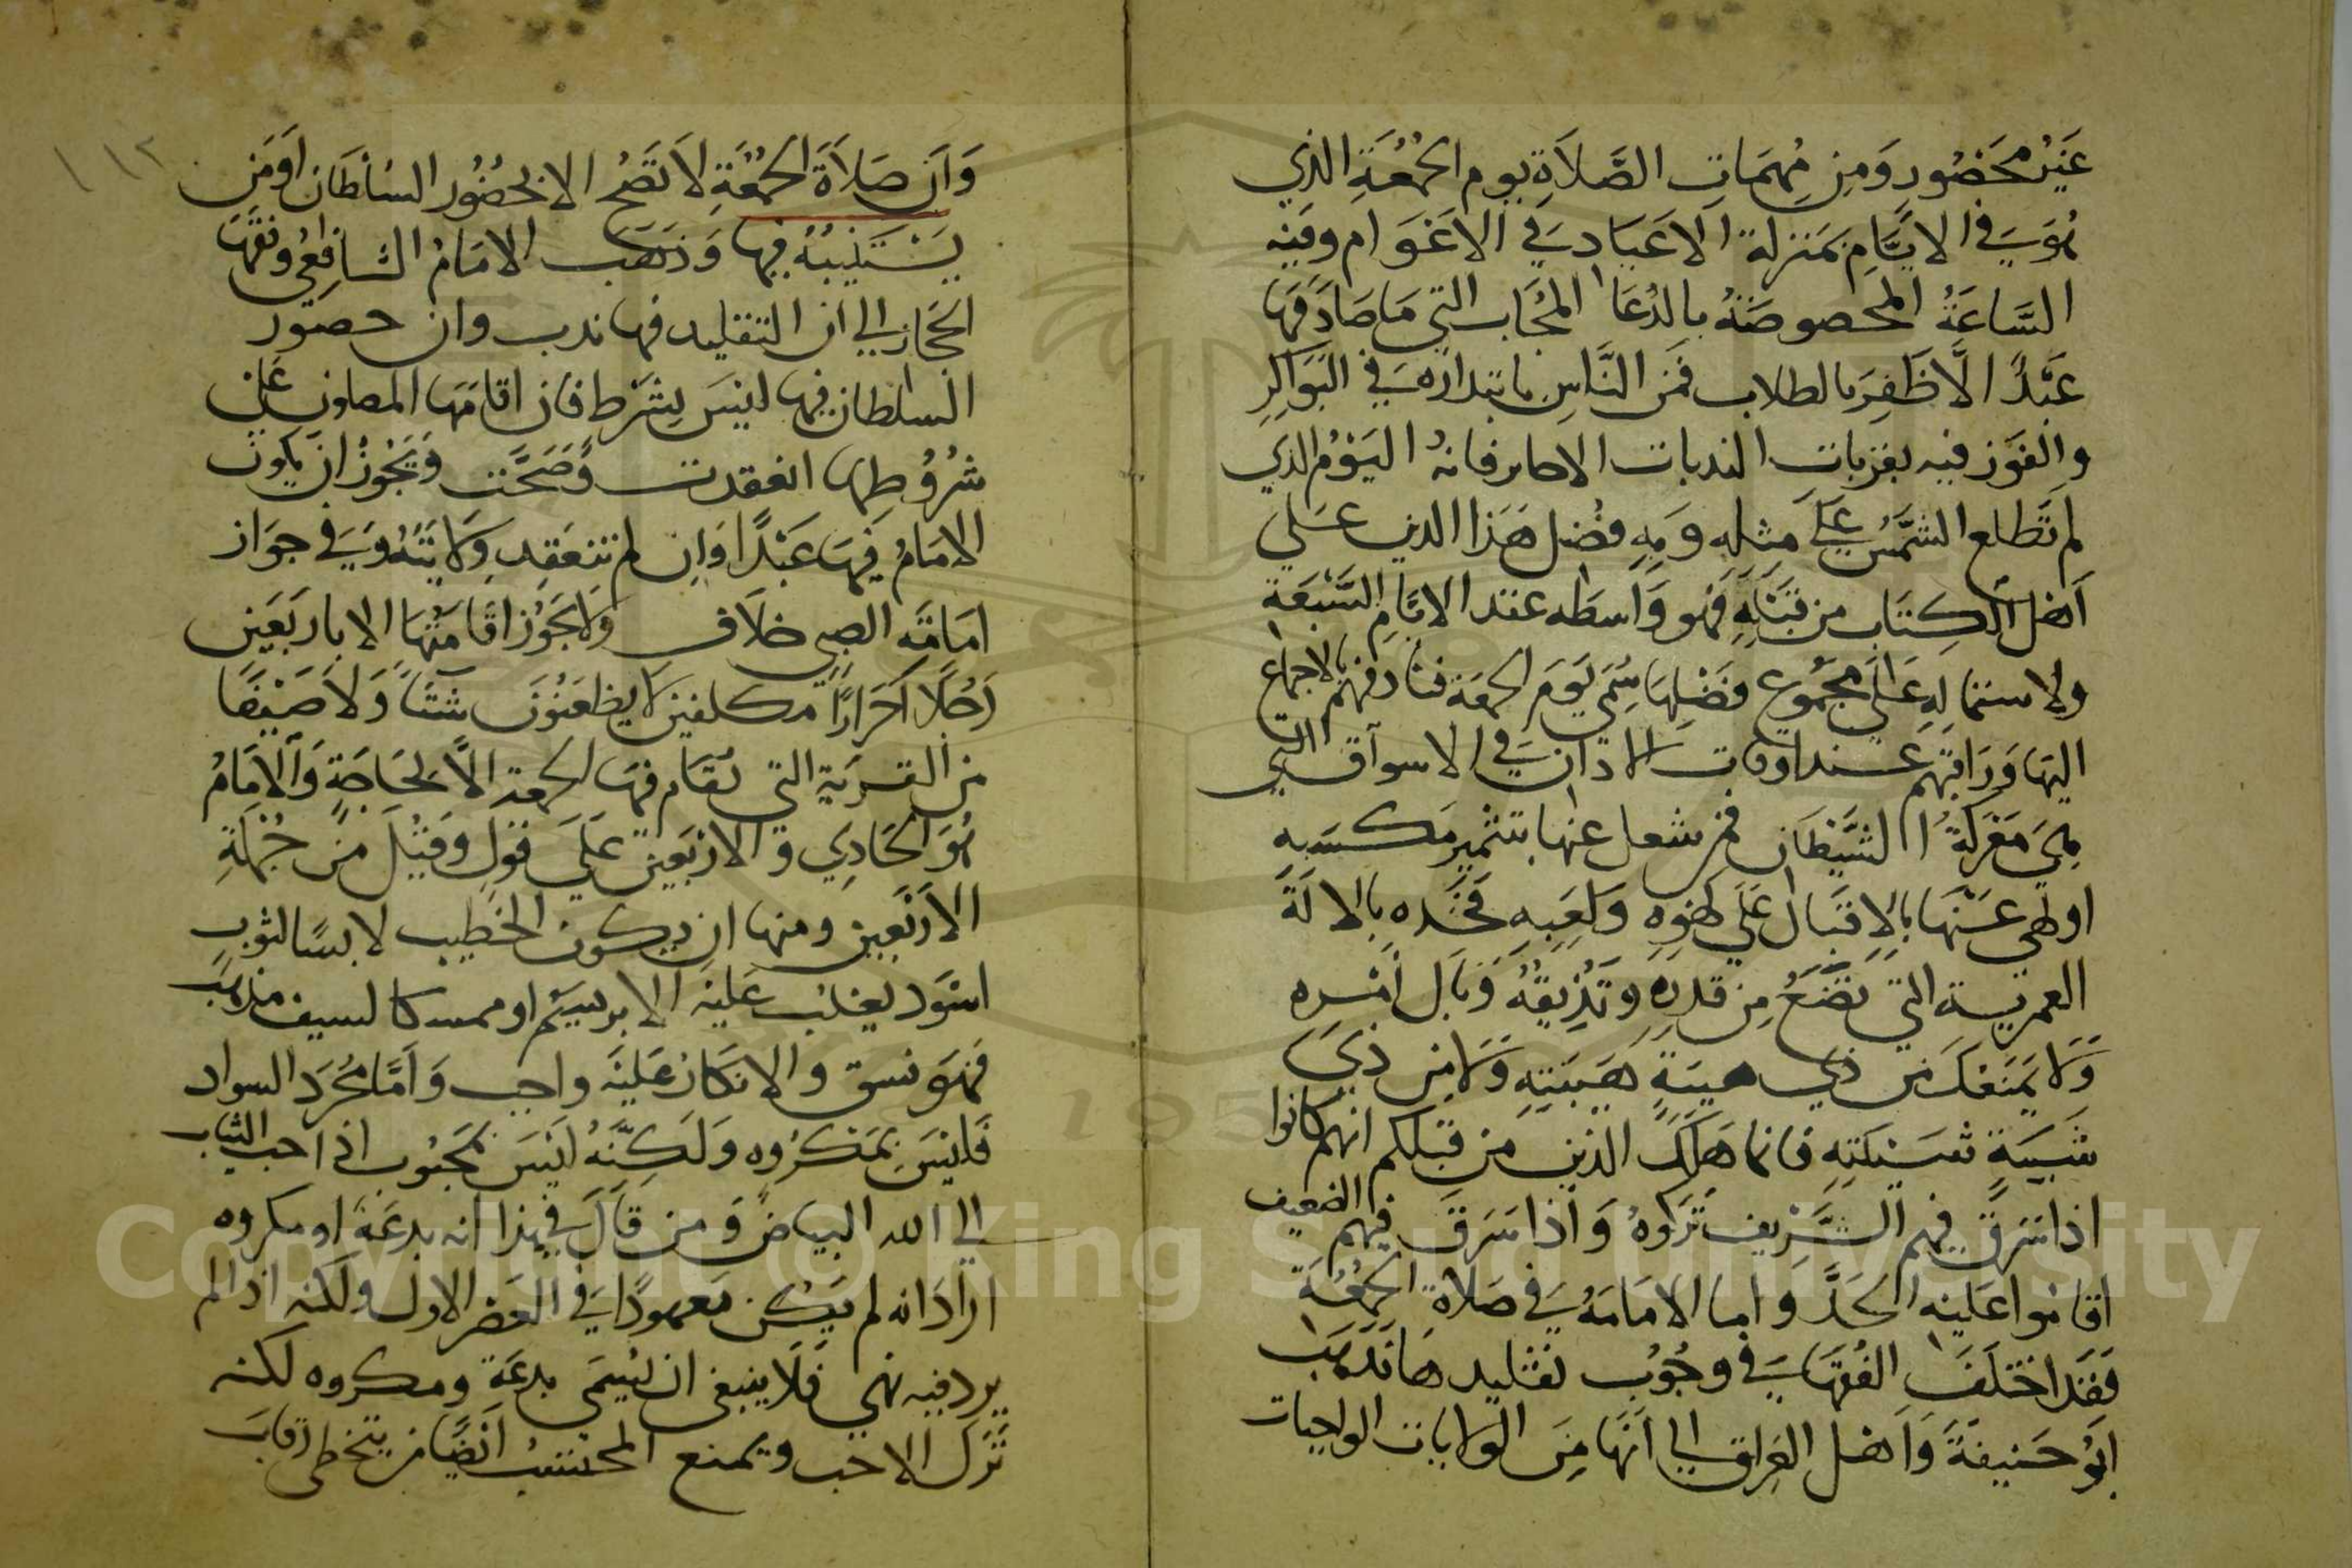 غَيْرُ محَضُورٍ وَمِن مُهِمَّاتِ الصَّلاَةِ يوم الجُمُعَةِ الذي
هُوَ في الايَّامِ بمَنزلة الاعيَاد في الاعَوَام وفيه
السَّاعَةُ المخصوصَةُ بالدُعَا المجَاب التي مَا صَادَفهَا
عَبْدٌ الَّا ظَفِرَ بالطلاب فمُر النَّاسِ بابتداره في البَوَاكِرِ
والفَوز فيه بقربات البدنات الاكابر فانهُ اليَوْمُ الذي
لم تَطلع الشَّمْسُ عَلَى مِثلِهِ وَبِهِ فضُل هَذَا الدين عَلي
أهل الكِتَاب من قَبْلِهِ فهو وَاسطه عقد الايَّامِ السَّبْعَة
ولاستماله عَلَى مجْمُوعِ فَضْلِهَا سُمِّي يَومَ الجمعَة فناد فيهم بالاجماع
اليهَا وَرَاقبهم عند اوقات الاذان في الاسوَاق التي
هي مَعْرَكةُ الشَّيْطَان فمن شغل عنها بتثمير مَكسَبه
او لهي عَنْهَا بالاقبَال عَلَى لهَوِهِ وَلَعِبِهِ فخُذه بالالَةِ
العمرية التي تضَعُ مِن قدرِهِ وَتُذِيقهُ وَبَال أمْره
وَلَا يمنَعكَ مَن ذي هيبَةٍ هَيبَتهِ وَلَا مِن ذي
شَيبَةٍ شَيْبَتهِ فانما هَلَكَ الذين من قبلكم انهم كانوا
اذا سَرَق فيهم الشَّرِيف تَرَكوهُ وَاذا سَرَقَ فيهم الضعيف
اقامُوا عَليه الحَدَّ واما الامَامَةُ في صَلاةِ الجمُعَة
فَقَد اختَلَفَ الفُقهَا في وجُوب تقليدهَا فذهَبَ
ابُو حَنيفَةَ وَاهل العِرَاق الي أنَّهَا مِنَ الولايات الواجبات
١١٢
وَان صَلاَةَ الجمُعَةِ لا تَصُح الا بحُضُور السُلطَان اَو مَن
يَسْتَنيبُهُ فيها وَذَهَب الامَامُ الشافِعِي وفقهَا
الحجَاز الي ان التقليد فيها ندب وان حضور
السلطان فيها لَيسَ بِشَرْط فان اقامَهَا المصلون عَلى
شُرُوطها انعقدت وصَحَّت وَيَجُوزُ ان يكون
الامَامُ فيهَا عَبْدًا وَاِن لم تنعَقِد وَلَايَتهُ وَفي جوَاز
امَامَةِ الصبي خلَاف وَلَا يجُوز اقامَتُهَا الا باربَعِين
رَجُلًا أحَرَارًا مكلفين لَا يظعَنُونَ شتَآً وَلاَ صَيْفًا
من القَريَةِ التي تقام فيهَا الجمعة الَّا لحَاجَةٍ وَالامَامُ
هُوَ الحَادِي وَالاربَعينَ عَلَى قولٍ وَقيْلَ مِن جُمْلَةِ
الأَرْبَعِين ومنها ان يكون الخطيب لابسًا لثوب
اسْوَد يغلب عَليه الابريسَم او ممسكا لسيف مذهَب
فَهَوَ فسق والانكار عَلَيْه واجب وَامَّا مُجَرَد السواد
فَلَيْسَ بمَكرُوه وَلَكِنَّهُ لَيْسَ بمَحبُوب اذ احب الثياب
إلي الله البيَاضُ وَمن قَالَ في هذا انه بدعَة او مكروه
ارَادَ انه لم يَكُن مَعهودًا في العَصر الاول ولكنه اذا لم
يرد فيه نهي فَلَا ينبغي ان يُسَمَّى بدعَة ومكروه لكنه
تَركُ الاحب ويمنع المحتسبُ ايْضًا من يتخطى رقابَ